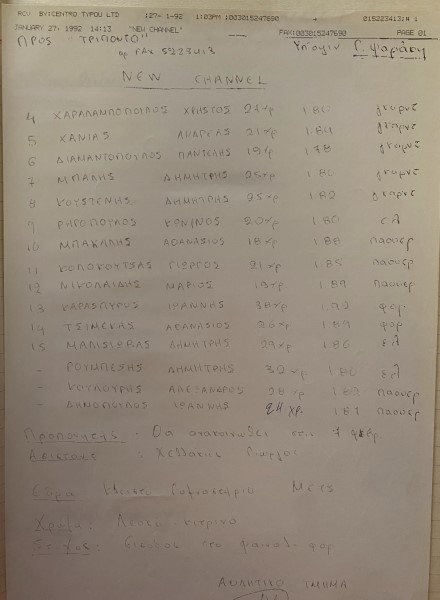 RCV BY:CENTRO TYPOU LTD :27- 1-92 11:03PM :003015247690 4 0152234131# 1
JANUARY 27, 1992 14:13 "NEW CHANNEL" FAX:003015247690 PAGE 01
ΠΡΟΣ "ΤΡΙΠΟΝΤΟ" Υπ'οψιν Γ. Ψαράκη
αρ FAX 5223413
NEW CHANNEL
4 ΧΑΡΑΛΑΜΠΟΠΟΥΛΟΣ ΧΡΗΣΤΟΣ 27χρ 1.80 γκαρντ
5 ΧΑΝΙΑΣ ΑΝΔΡΕΑΣ 21χρ 1.84 γκαρντ
6 ΔΙΑΜΑΝΤΟΠΟΥΛΟΣ ΠΑΝΤΕΛΗΣ 19χρ 1.78 γκαρντ
7 ΜΠΑΛΗΣ ΔΗΜΗΤΡΗΣ 25χρ 1.80 γκαρντ
8 ΚΟΥΣΤΕΝΗΣ ΔΗΜΗΤΡΗΣ 25χρ 1.82 γκαρντ
9 ΡΗΓΟΠΟΥΛΟΣ ΚΩΝ/ΝΟΣ 20χρ 1.80 ελ
10 ΜΠΑΚΑΛΗΣ ΑΘΑΝΑΣΙΟΣ 18χρ 1.88 παουερ
11 ΚΟΛΟΚΟΥΤΣΑΣ ΓΙΩΡΓΟΣ 21χρ 1.85 παουερ
12 ΝΙΚΟΛΑΙΔΗΣ ΜΑΡΙΟΣ 19χρ 1.89 παουερ
13 ΚΑΡΑΣΠΥΡΟΣ ΙΩΑΝΝΗΣ 38χρ 1.92 φορ
14 ΤΣΙΜΕΚΑΣ ΑΘΑΝΑΣΙΟΣ 26χρ φορ
15 ΔΗΜΗΤΡΗΣ 29χρ 1.86 ελ
- ΡΟΥΜΠΕΣΗΣ ΔΗΜΗΤΡΗΣ 32χρ 1.80 ελ
- ΚΟΥΛΟΥΡΗΣ ΑΛΕΞΑΝΔΡΟΣ 28χρ παουερ
- ΔΗΜΟΠΟΥΛΟΣ ΙΩΑΝΝΗΣ 24 ΧΡ. 187 παουερ
Προπονητής : Θα ανακοινωθεί στις 7 φεβρ.
Ασίσταντ : Γιώργος
Έδρα : Κλειστό Γυμναστήριο Μετς
Χρώμα : Λευκό κίτρινο
Στόχος : Είσοδος στο φάιναλ φορ
ΑΘΛΗΤΙΚΟ ΤΜΗΜΑ